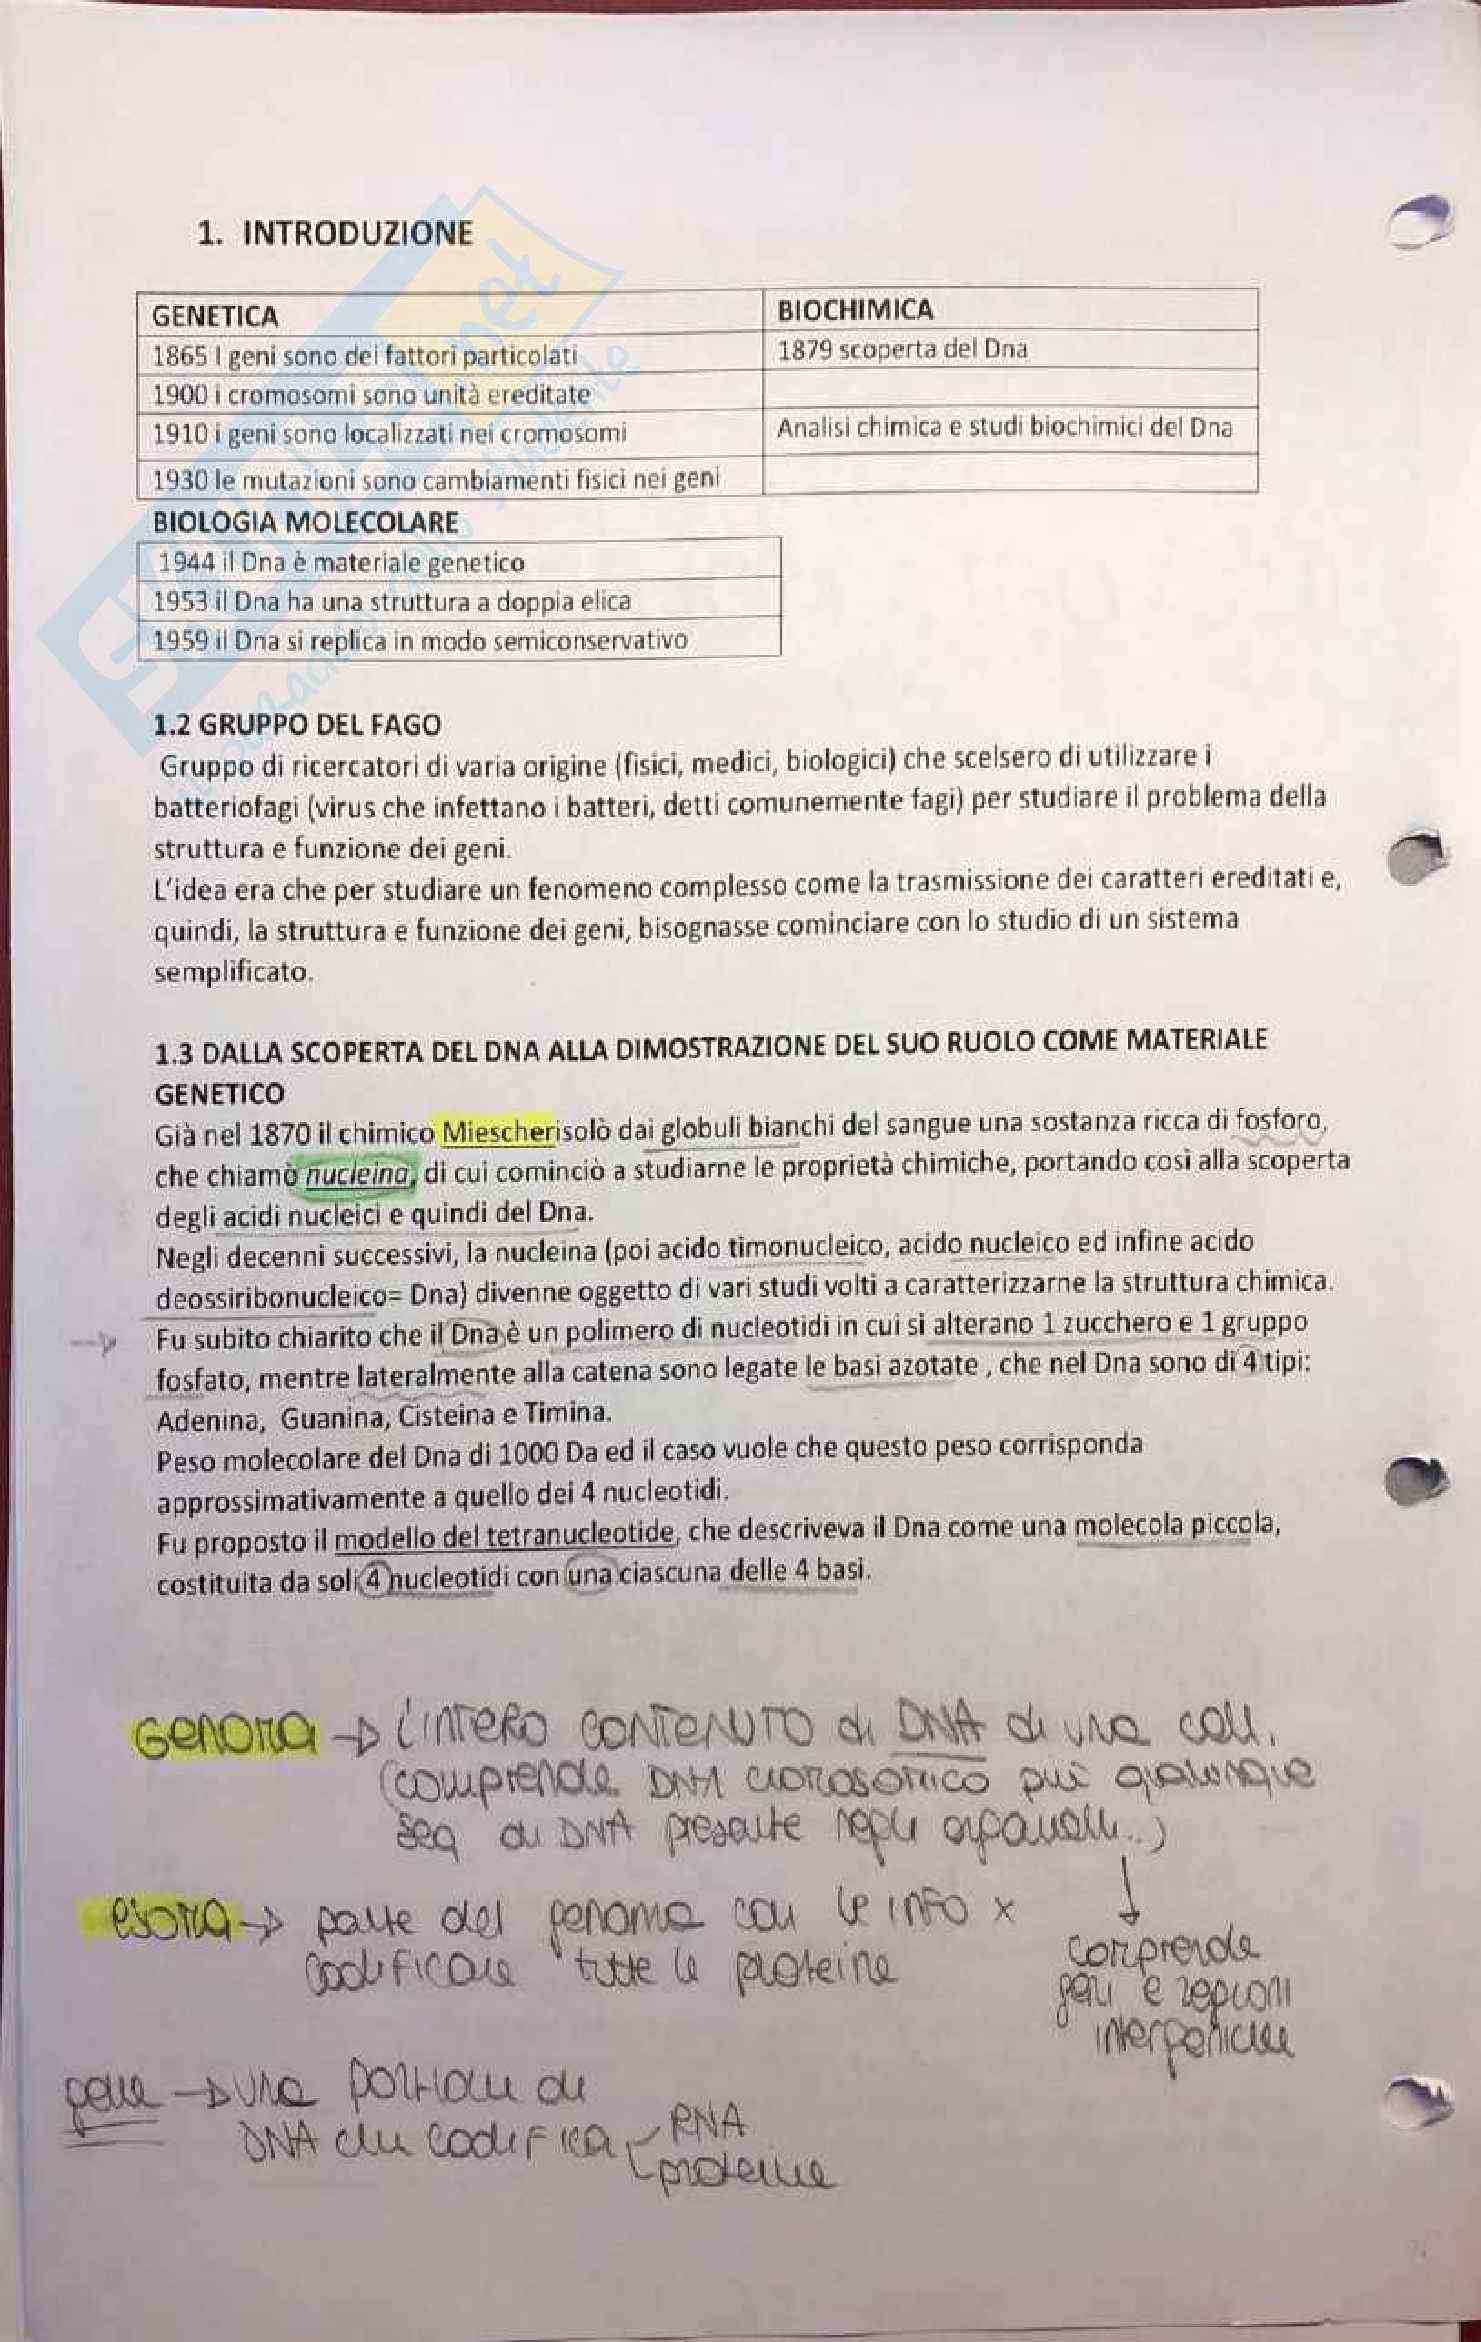 1. INTRODUZIONE
GENETICA BIOCHIMICA
1865 I geni sono dei fattori particolati 1879 scoperta del Dna
1900 i cromosomi sono unità ereditate
1910 i geni sono localizzati nei cromosomi Analisi chimica e studi biochimici del Dna
1930 le mutazioni sono cambiamenti fisici nei geni
BIOLOGIA MOLECOLARE
1944 il Dna è materiale genetico
1953 il Dna ha una struttura a doppia elica
1959 il Dna si replica in modo semiconservativo
1.2 GRUPPO DEL FAGO
Gruppo di ricercatori di varia origine (fisici, medici, biologici) che scelsero di utilizzare i
batteriofagi (virus che infettano i batteri, detti comunemente fagi) per studiare il problema della
struttura e funzione dei geni.
L'idea era che per studiare un fenomeno complesso come la trasmissione dei caratteri ereditati e,
quindi, la struttura e funzione dei geni, bisognasse cominciare con lo studio di un sistema
semplificato.
1.3 DALLA SCOPERTA DEL DNA ALLA DIMOSTRAZIONE DEL SUO RUOLO COME MATERIALE
GENETICO
Già nel 1870 il chimico Miescherisolò dai globuli bianchi del sangue una sostanza ricca di fosforo,
che chiamò nucleina, di cui cominciò a studiarne le proprietà chimiche, portando così alla scoperta
degli acidi nucleici e quindi del Dna.
Negli decenni successivi, la nucleina (poi acido timonucleico, acido nucleico ed infine acido
deossiribonucleico= Dna) divenne oggetto di vari studi volti a caratterizzarne la struttura chimica.
Fu subito chiarito che il Dna è un polimero di nucleotidi in cui si alterano 1 zucchero e 1 gruppo
fosfato, mentre lateralmente alla catena sono legate le basi azotate , che nel Dna sono di 4 tipi:
Adenina, Guanina, Cisteina e Timina.
Peso molecolare del Dna di 1000 Da ed il caso vuole che questo peso corrisponda
approssimativamente a quello dei 4 nucleotidi.
Fu proposto il modello del tetranucleotide, che descriveva il Dna come una molecola piccola,
costituita da soli 4 nucleotidi con una ciascuna delle 4 basi.
Genoma → l'intero contenuto di DNA di una cell.
(comprende DNA cromosomico più qualunque
seq di DNA presente negli organelli..)
esoma → parte del genoma con le info x
codificare tutte le proteine
↓
comprende
geni e regioni
intergeniche
gene → una porzione di
DNA che codifica RNA
proteine